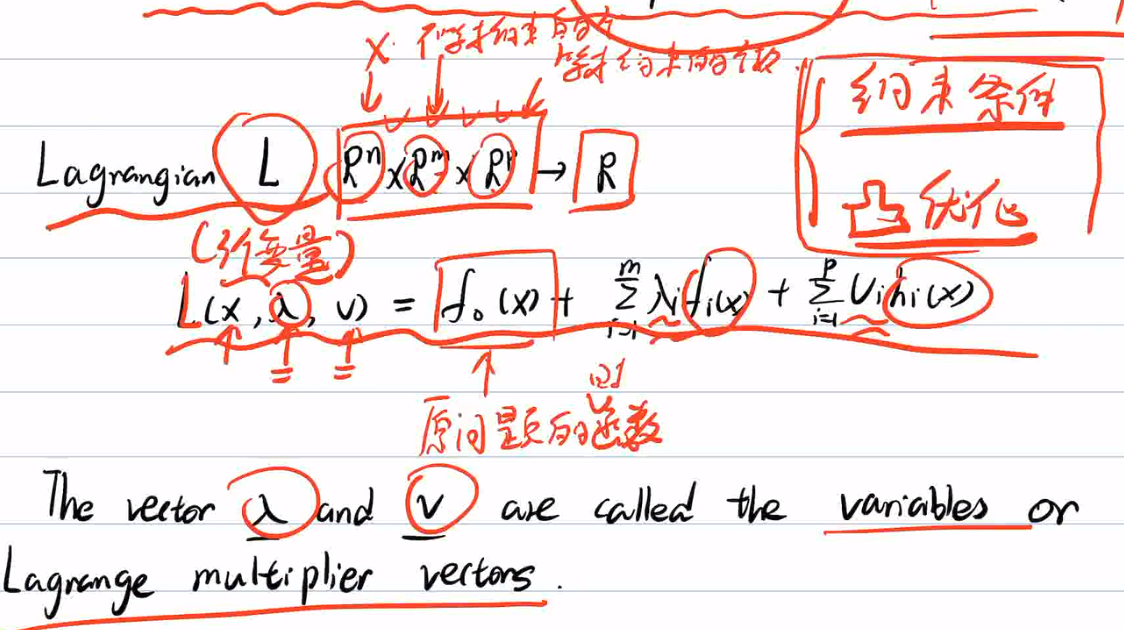 X. 不等式约束的个
等式约束的个数
约束条件
Lagrangian L R^n × R^m × R^p → R
凸优化
(引变量)
L(x, λ, v) = f₀(x) + Σ_{i=1}^{m} λᵢ fᵢ(x) + Σ_{i=1}^{p} vᵢ hᵢ(x)
原问题的函数
The vector λ and v are called the variables or
Lagrange multiplier vectors.